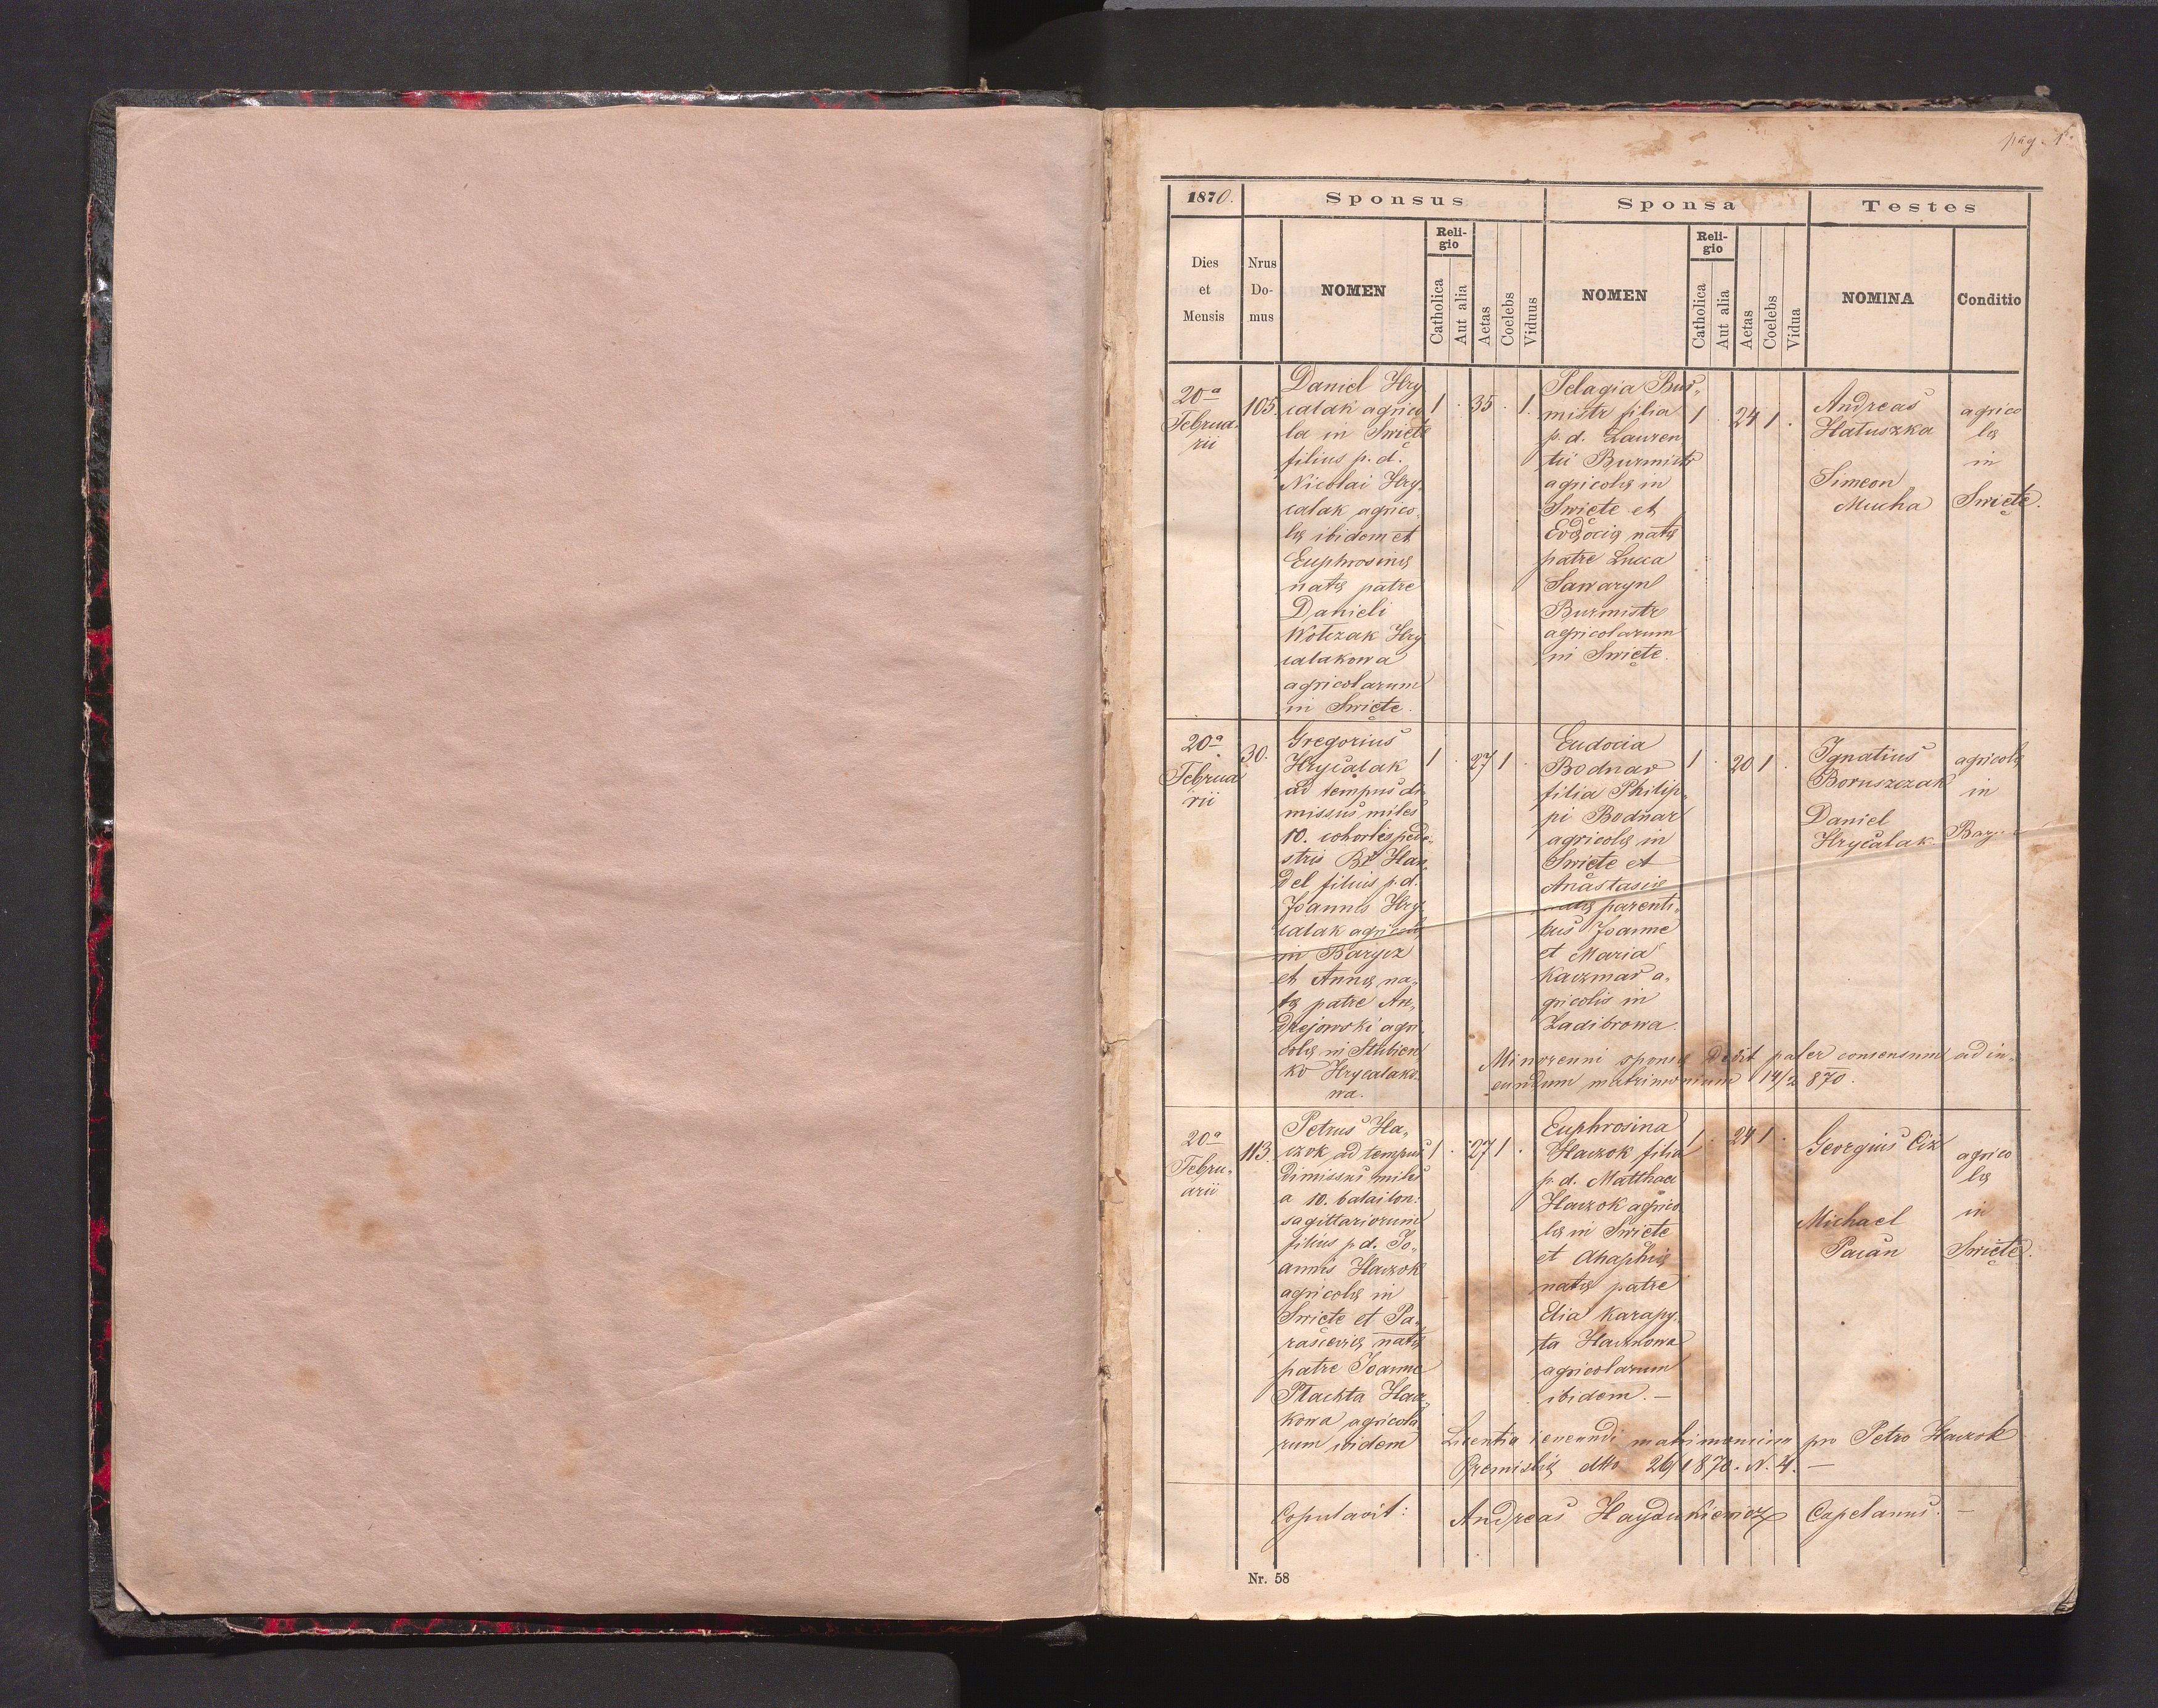 pag. 1.
1870.
Sponsus
Sponsa
Testes
Dies et Mensis
Nrus Domus
NOMEN
Religio
Catholica
Aut alia
Aetas
Coelebs
Viduus
NOMEN
Religio
Catholica
Aut alia
Aetas
Coelebs
Vidua
NOMINA
Conditio
20a
Februa-
rii
105.
Daniel Hry
catak agrico
la in Swięte
filius p. d.
Nicolai Hry,
catak agrico,
læ ibidem et
Euphrosinæ
natæ patre
Danieli
Wotczak Hry
catakowa
agricolarum
in Swięte.
1 . 35 . 1.
Pelagia Bur,
mistr filia
p. d. Lauren
tii Burmistr
agricolæ in
Swięte et
Evdociæ natæ
patre Lucca
Sawaryn
Burmistr
agricolarum
in Swięte.
1 . 24 1 .
Andreas
Hatuszka
Simeon
Mucha
agrico
læ
in
Swięte.
20a
Februa
rii
30.
Gregorius
Hrycatak
ad tempus di
missus miles
10. cohortis pede,
stris Bt Han
del filius p. d.
Joannis Hry,
catak agricolæ
in Barycz
et Annæ na,
tæ patre An,
drejowski agri
colæ in Stubien
ko Hrycatako
wa.
1 . 27 1 .
Eudocia
Bodnar
filia Philip,
pi Bodnar
agricolæ in
Swięte et
Anastasiæ
natæ parenti,
bus Joanne
et Maria
Kaczmar a,
gricolis in
Zadibrowa.
1 . 20 1 .
Ignatius
Boruszczak
Daniel
Hrycatak.
agricolæ
in
Minorenni sponsæ dedit pater consensum ad in,
eundum matrimonium 14/2 870.
20a
Febru,
arii
113.
Petrus Ha,
czok ad tempus
dimissus miles
a 10. batailon:
sagittariorum
filius p. d. Jo,
annis Haczok
agricolæ in
Swięte et Pa,
rasceviæ natæ
patre Joanne
Ptachta Hacz,
kowa agricola
rum ibidem
1 . 27 1 .
Euphrosina
Haczok filia
p. d. Matthaei
Haczok agrico
læ in Swięte
et Ahaphiæ
natæ patre
Elia Karapy,
ta Haczkowa
agricolarum
ibidem. —
1 . 24 1 .
Georgius Ciz
Michael
Pacan
agrico
læ
in
Swięte.
Licentia ineundi matrimonium pro Petro Haczok
Premisliæ dtto 26/1 870. N. 4. —
Copulavit: Andreas Haydukiewicz Capelanus. —
Nr. 58